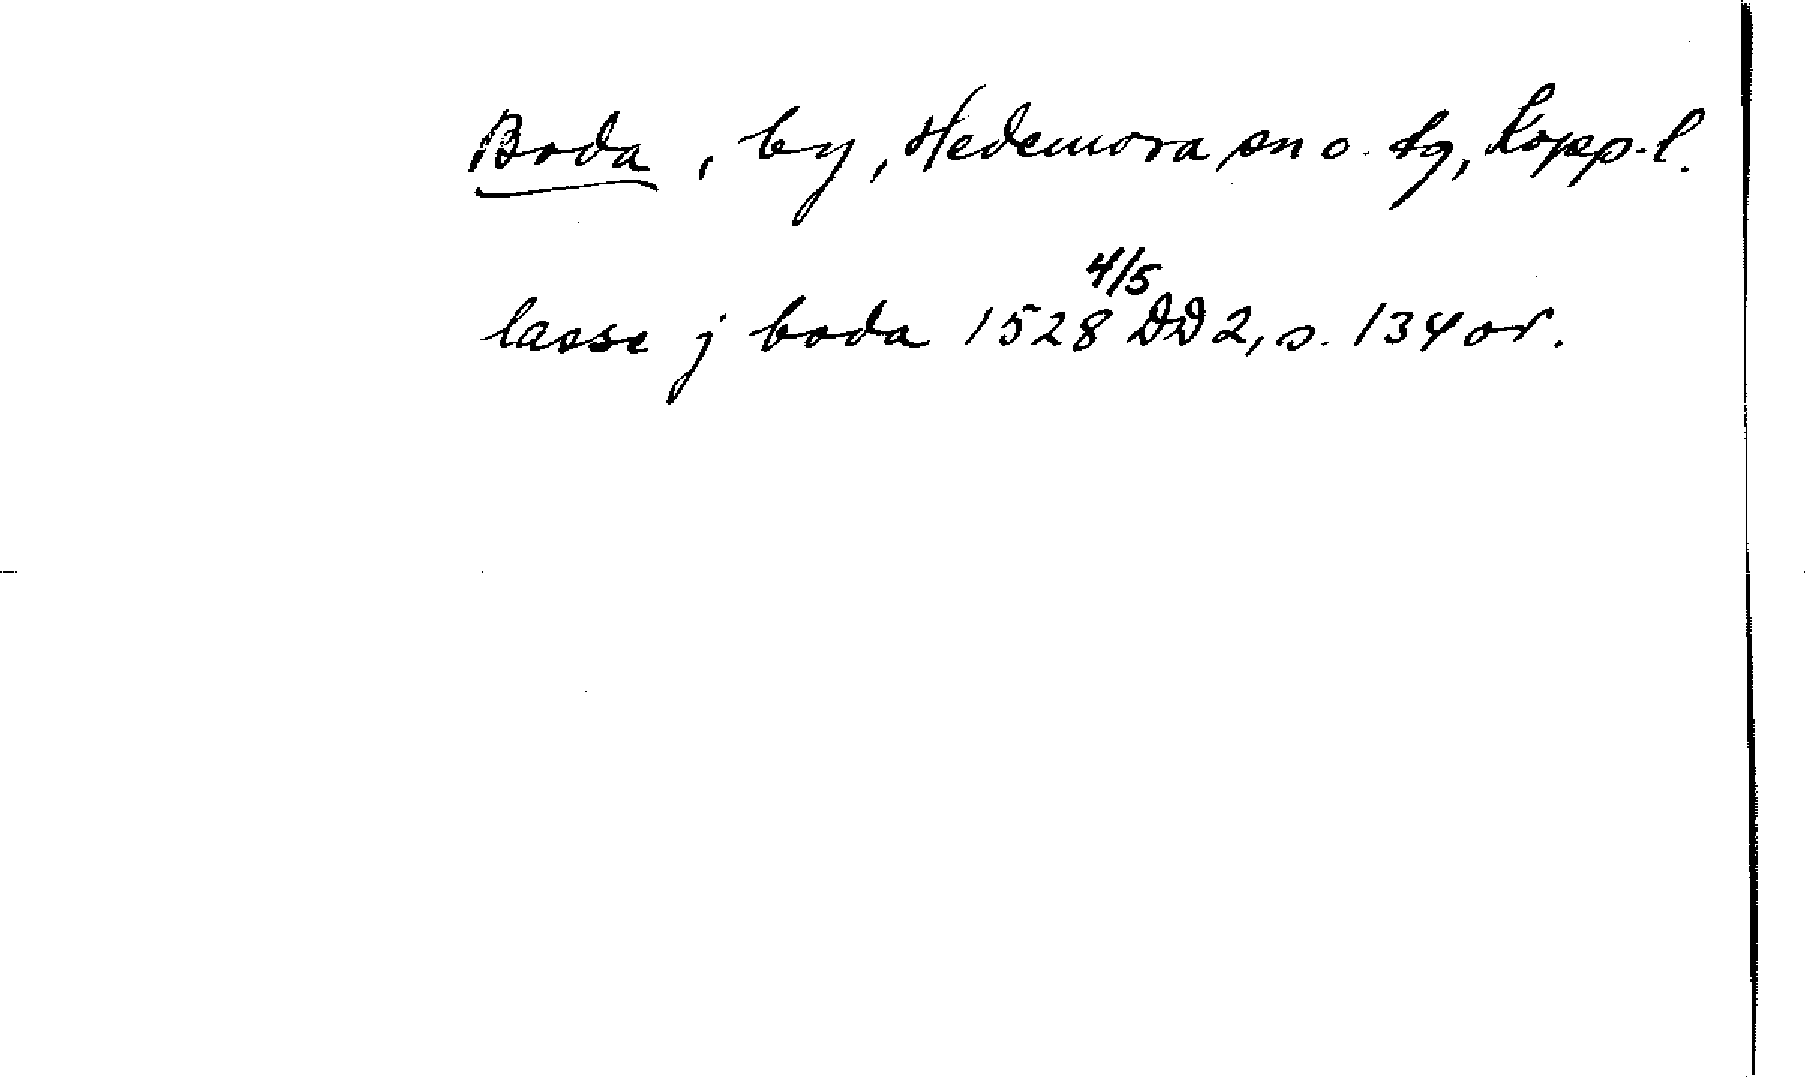 Boda, by, Hedemora sn o. tg, Kopp. l.
lasse j boda 1528 4/5 DD 2, s. 134 or.